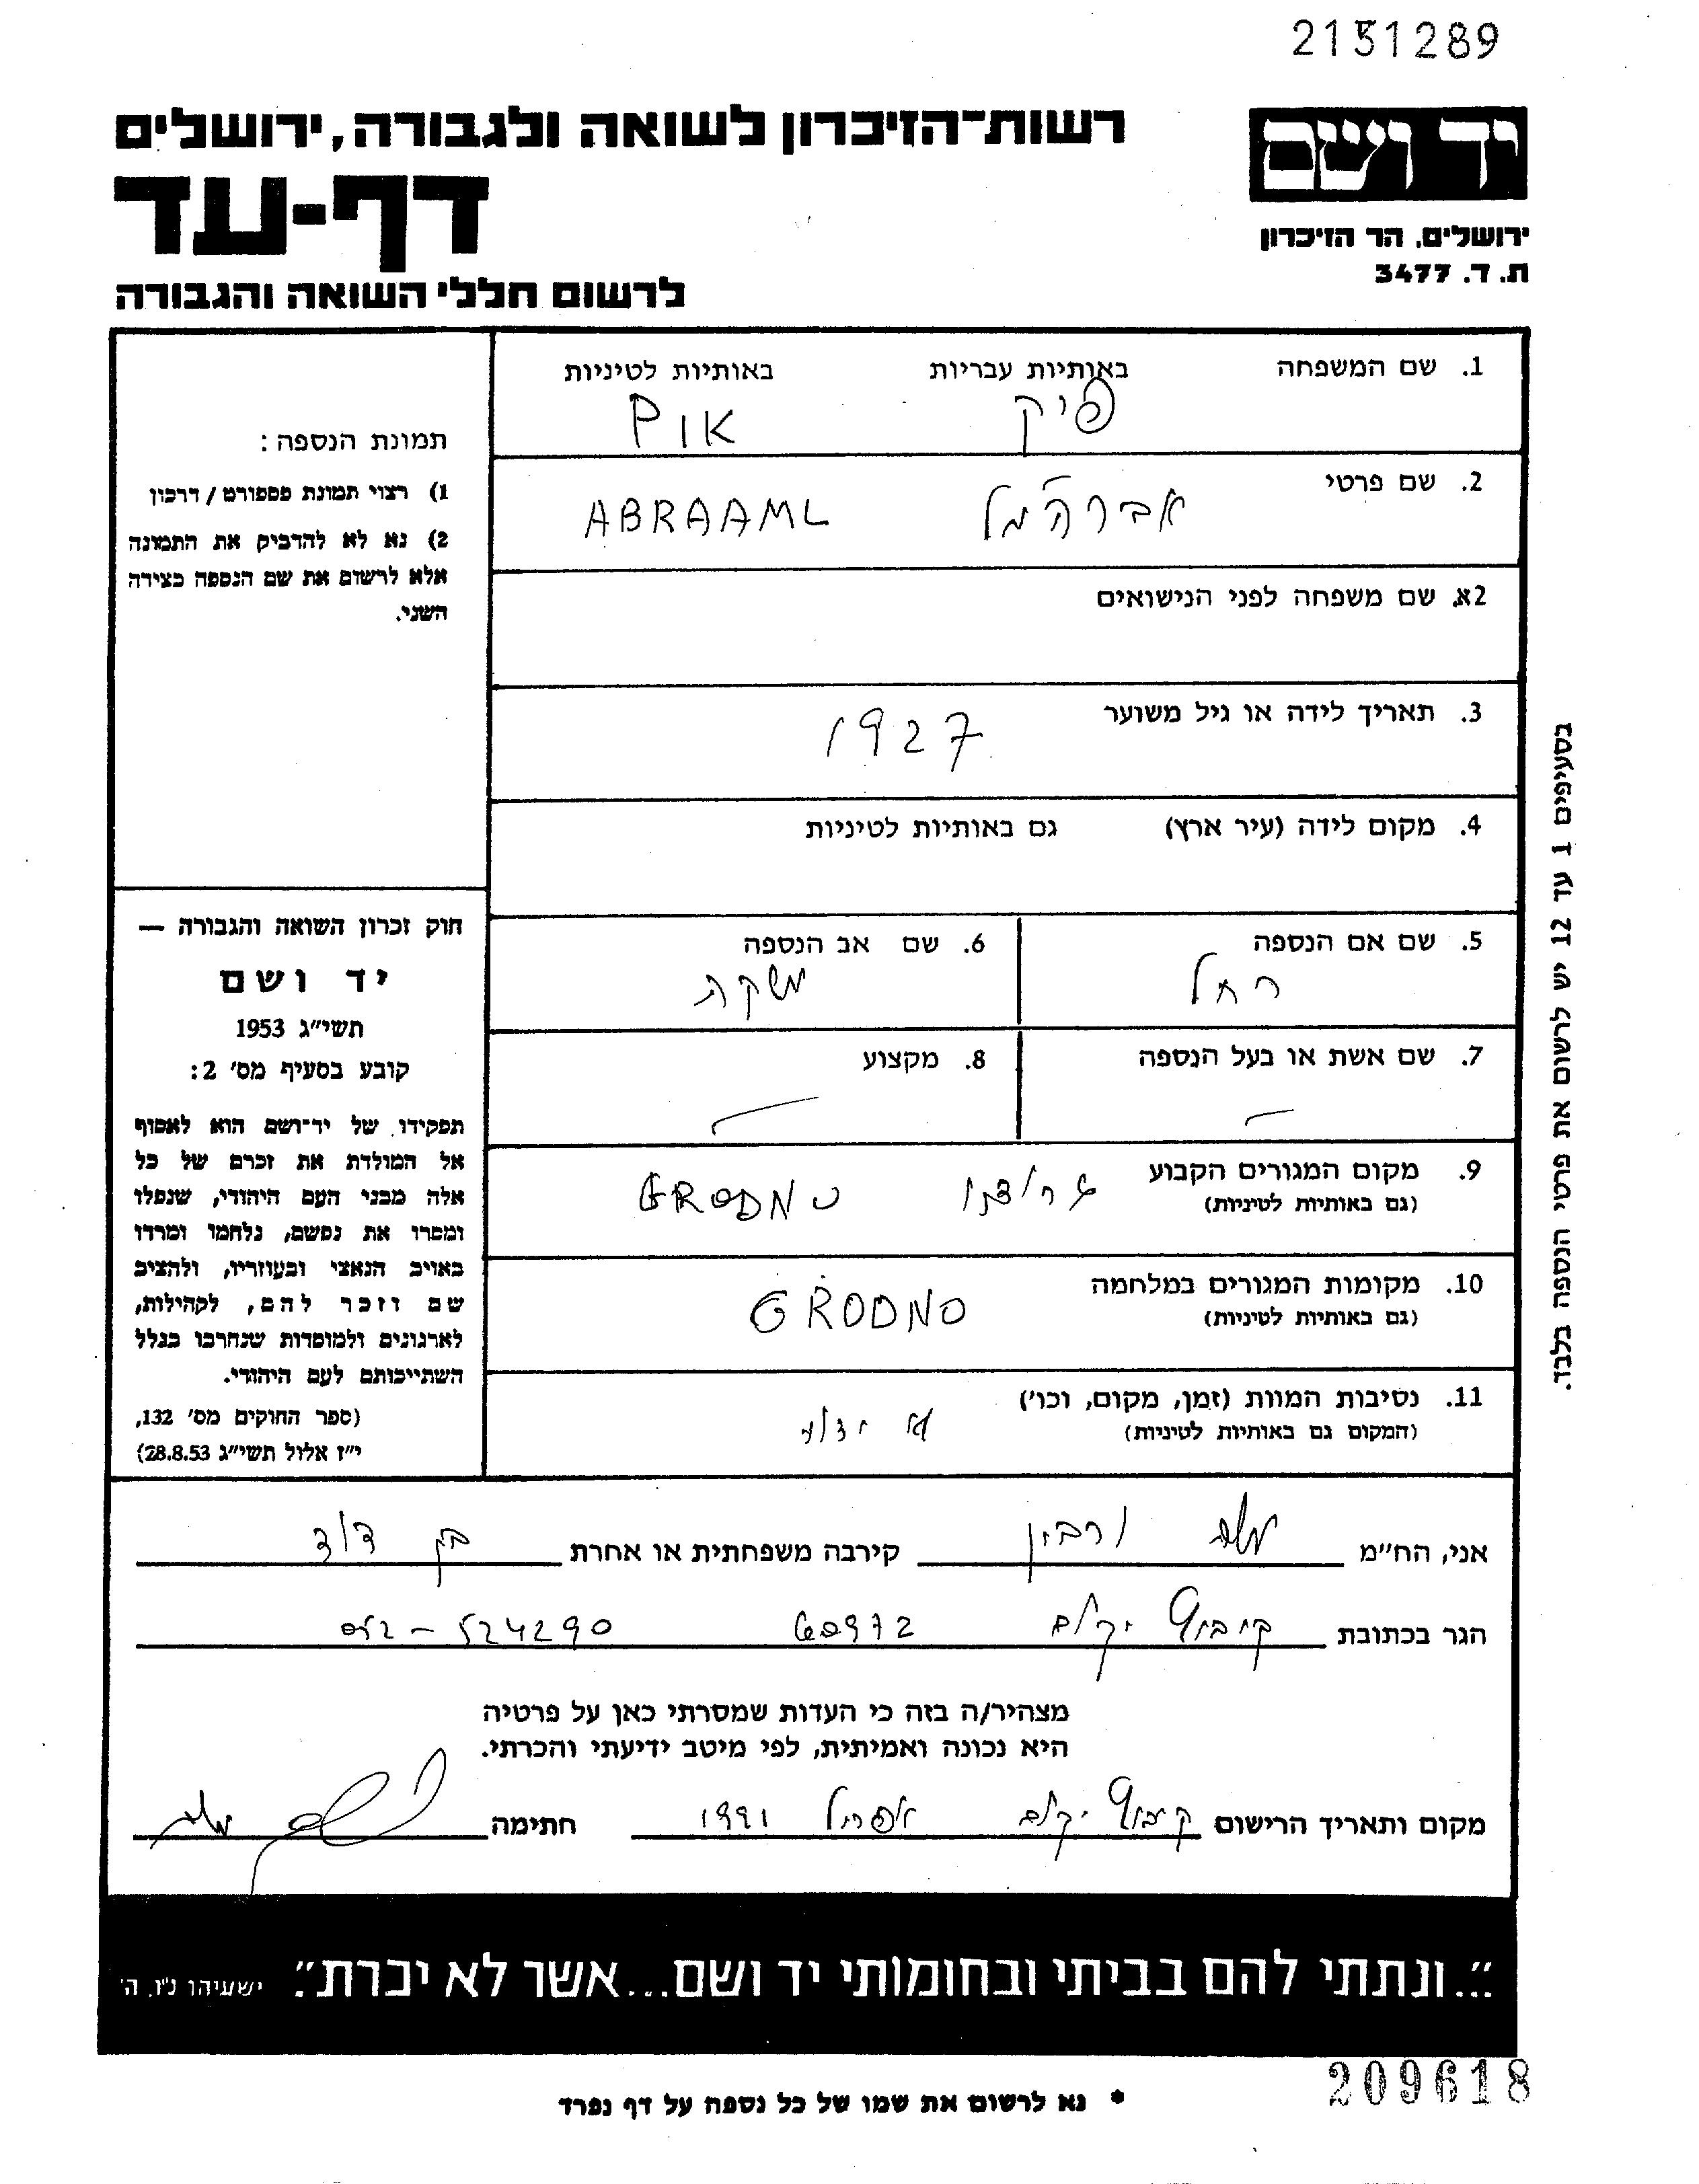 2151289
יד ושם
רשות־הזיכרון לשואה ולגבורה, ירושלים
דף-עד
ירושלים, הר הזיכרון
ת. ד. 3477
לרשום חללי השואה והגבורה
1. שם המשפחה באותיות עבריות באותיות לטיניות
פיק PIK
2. שם פרטי
אברהמל ABRAAML
2א. שם משפחה לפני הנישואים
3. תאריך לידה או גיל משוער
1927
4. מקום לידה (עיר ארץ) גם באותיות לטיניות
5. שם אם הנספה
רחל
6. שם אב הנספה
משקה
7. שם אשת או בעל הנספה
8. מקצוע
9. מקום המגורים הקבוע
(גם באותיות לטיניות)
גרודנו GRODNO
10. מקומות המגורים במלחמה
(גם באותיות לטיניות)
GRODNO
11. נסיבות המוות (זמן, מקום, וכו')
(המקום גם באותיות לטיניות)
לא ידוע
תמונת הנספה:
1) רצוי תמונת פספורט / דרכון
2) נא לא להדביק את התמונה
אלא לרשום את שם הנספה בצידה
השני.
חוק זכרון השואה והגבורה —
יד ושם
תשי״ג 1953
קובע בסעיף מס׳ 2:
תפקידו של יד־ושם הוא לאסוף
אל המולדת את זכרם של כל
אלה מבני העם היהודי, שנפלו
ומסרו את נפשם, נלחמו ומרדו
באויב הנאצי ובעוזריו, ולהציב
שם וזכר להם, לקהילות,
לארגונים ולמוסדות שנחרבו בגלל
השתייכותם לעם היהודי.
(ספר החוקים מס׳ 132,
י״ז אלול תשי״ג 28.8.53)
בסעיפים 1 עד 12 יש לרשום את פרטי הנספה בלבד.
אני, הח״מ משה ורבין קירבה משפחתית או אחרת בן דוד
הגר בכתובת קיבוץ יקום 60972 052-524290
מצהיר/ה בזה כי העדות שמסרתי כאן על פרטיה
היא נכונה ואמיתית, לפי מיטב ידיעתי והכרתי.
מקום ותאריך הרישום קיבוץ יקום אפריל 1991 חתימה
״...ונתתי להם בביתי ובחומותי יד ושם...אשר לא יכרת״. ישעיהו נ״ו, ה׳
209618
* נא לרשום את שמו של כל נספה על דף נפרד